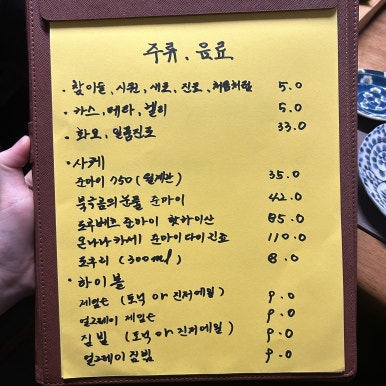 주류, 음료
· 참이슬, 시원, 새로, 진로, 처음처럼 5.0
· 카스, 테라, 켈리 5.0
· 화요, 일품진로 33.0
· 사케
준마이 750 (월계관) 35.0
북극곰의눈물 준마이 42.0
도쿠베츠 준마이 핫카이산 85.0
온나나카세 준마이다이긴죠 110.0
도쿠리 (300ml) 8.0
· 하이볼
제임슨 (토닉 or 진저에일) 9.0
얼그레이 제임슨 9.0
짐빔 (토닉 or 진저에일) 9.0
얼그레이 짐빔 9.0